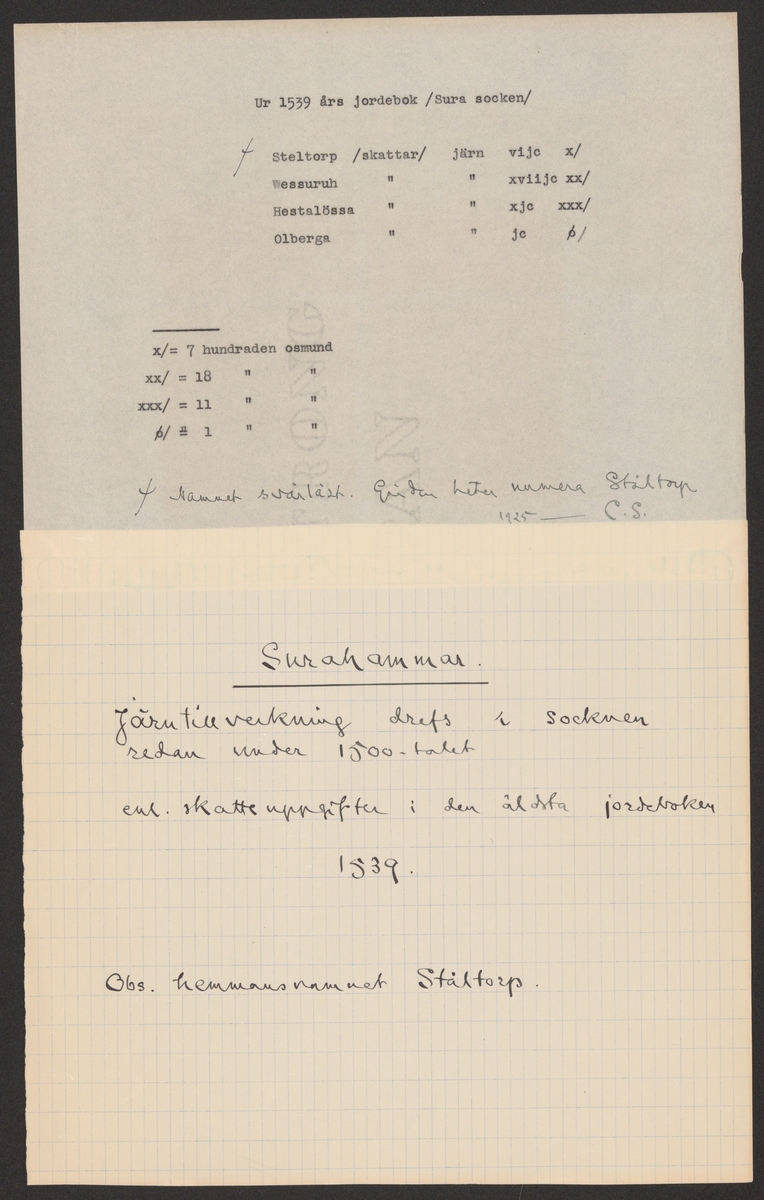 Ur 1539 års jordebok /Sura socken/
+ Steltorp /skattar/ järn vijc x/
Wessuruh " " xviijc xx/
Hestalössa " " xjc xxx/
Olberga " " jc ø/
x/= 7 hundraden osmund
xx/ = 18 " "
xxx/ = 11 " "
ø/ = 1 " "
+ Namnet svårläst. Gården heter numera Ståltorp
1925 — C.S.
Surahammar.
Järntillverkning drefs i socknen
redan under 1500-talet
enl. skatteuppgifter i den äldsta jordeboken
1539.
Obs. hemmansnamnet Ståltorp.